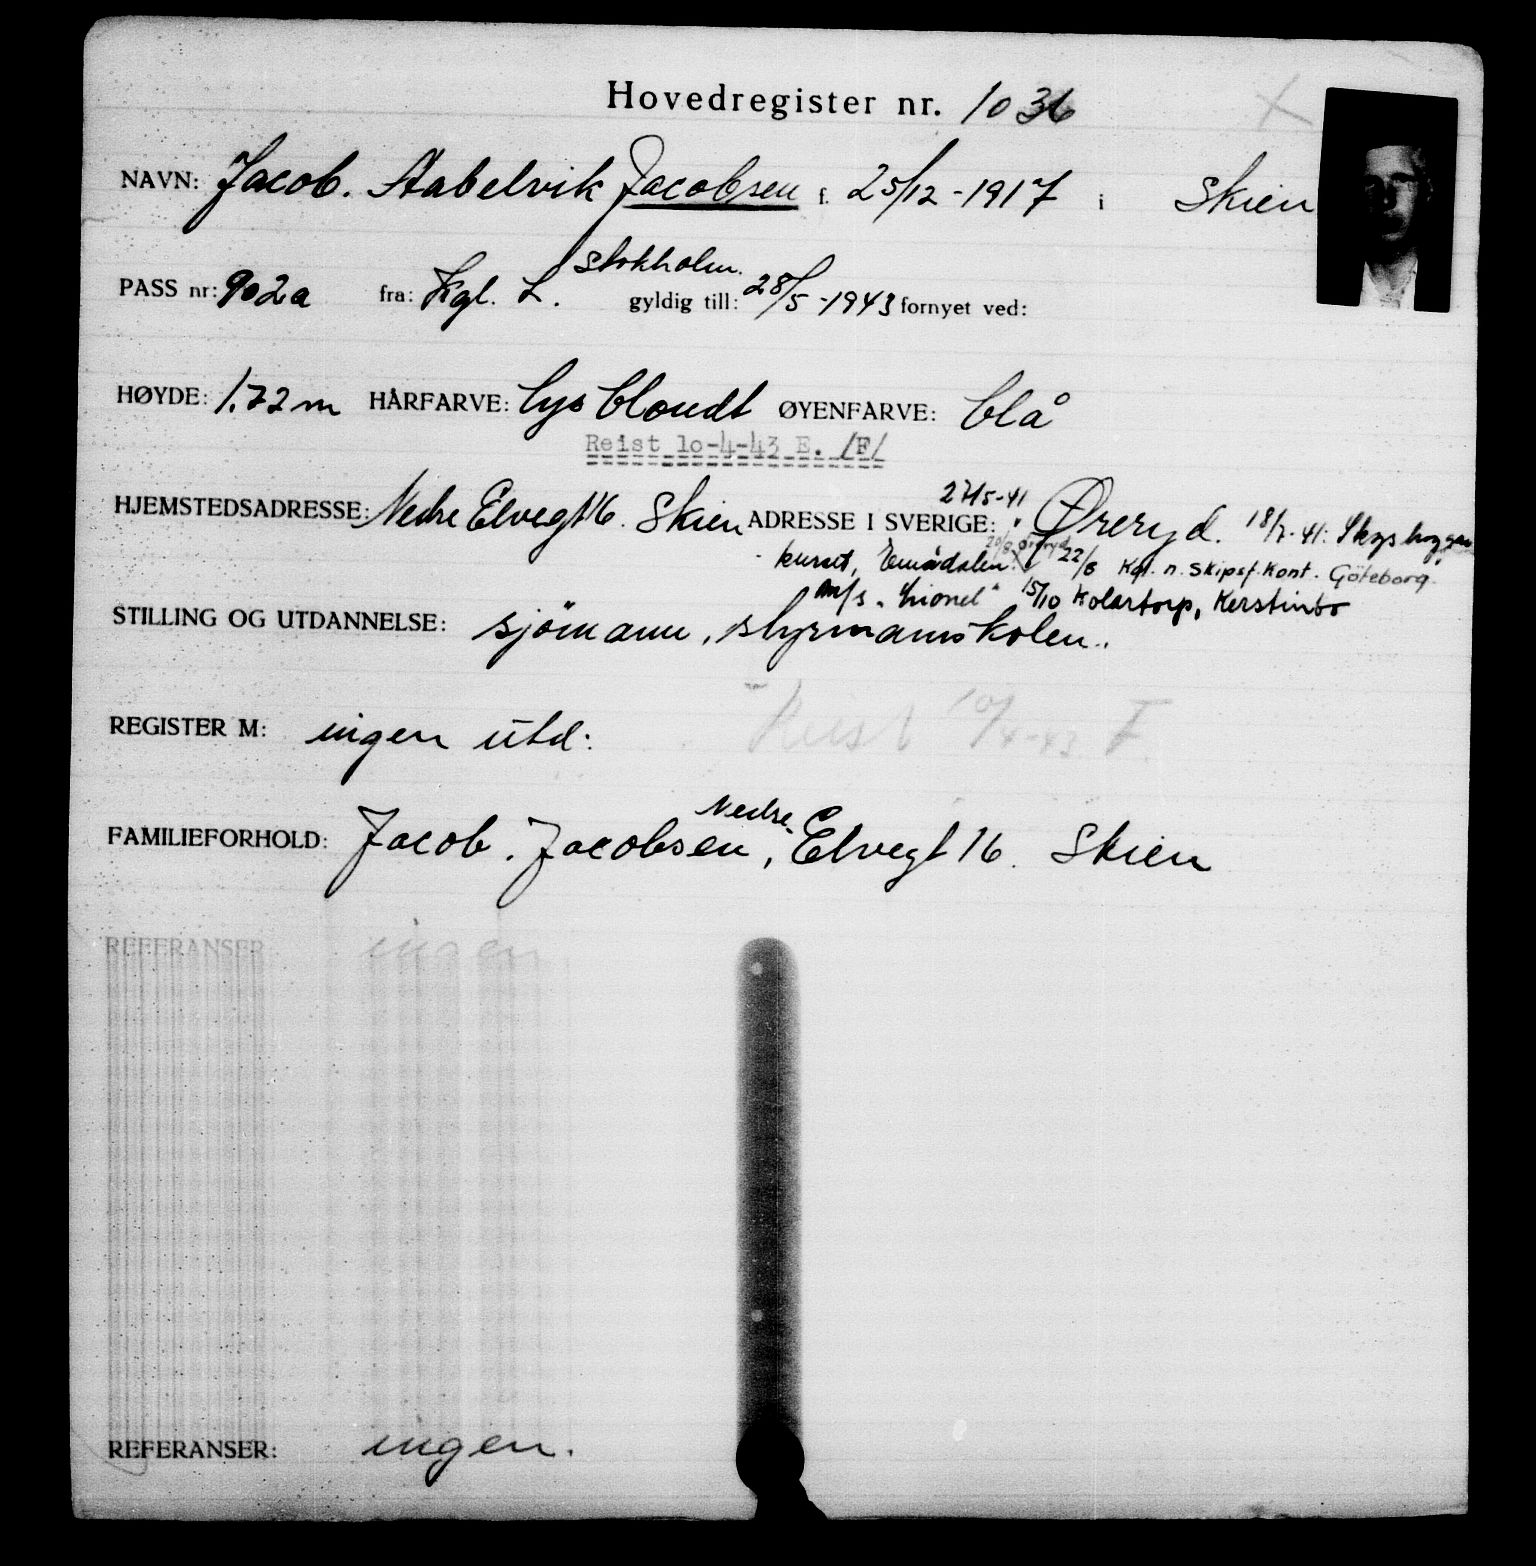 Hovedregister nr. 1036
NAVN: Jacob. Aabelvik Jacobsen f. 25/12-1917 i Skien
PASS nr: 902a fra: Kgl. L. Stokholm. gyldig till: 28/5-1943 fornyet ved:
HØYDE: 1.72 m HÅRFARVE: lys blondt ØYENFARVE: blå
Reist 1o-4-43 E. /F/
HJEMSTEDSADRESSE: Nedre Elvegt 16. Skien ADRESSE I SVERIGE: 27/5-41 Øreryd. 18/7-41:
kurset, 20/8 Öreryd 22/8 Kgl. n. Skipsf. Kont. Göteborg.
M/s "Lionel" 15/10 Kolartorp, Kerstinbo
STILLING OG UTDANNELSE: sjömann, styrmannskolen.
REGISTER M: ingen utd:
Reist 10/4-43 F
FAMILIEFORHOLD: Jacob. Jacobsen, Nedre Elvegt 16. Skien
REFERANSER: ingen
REFERANSER: ingen.